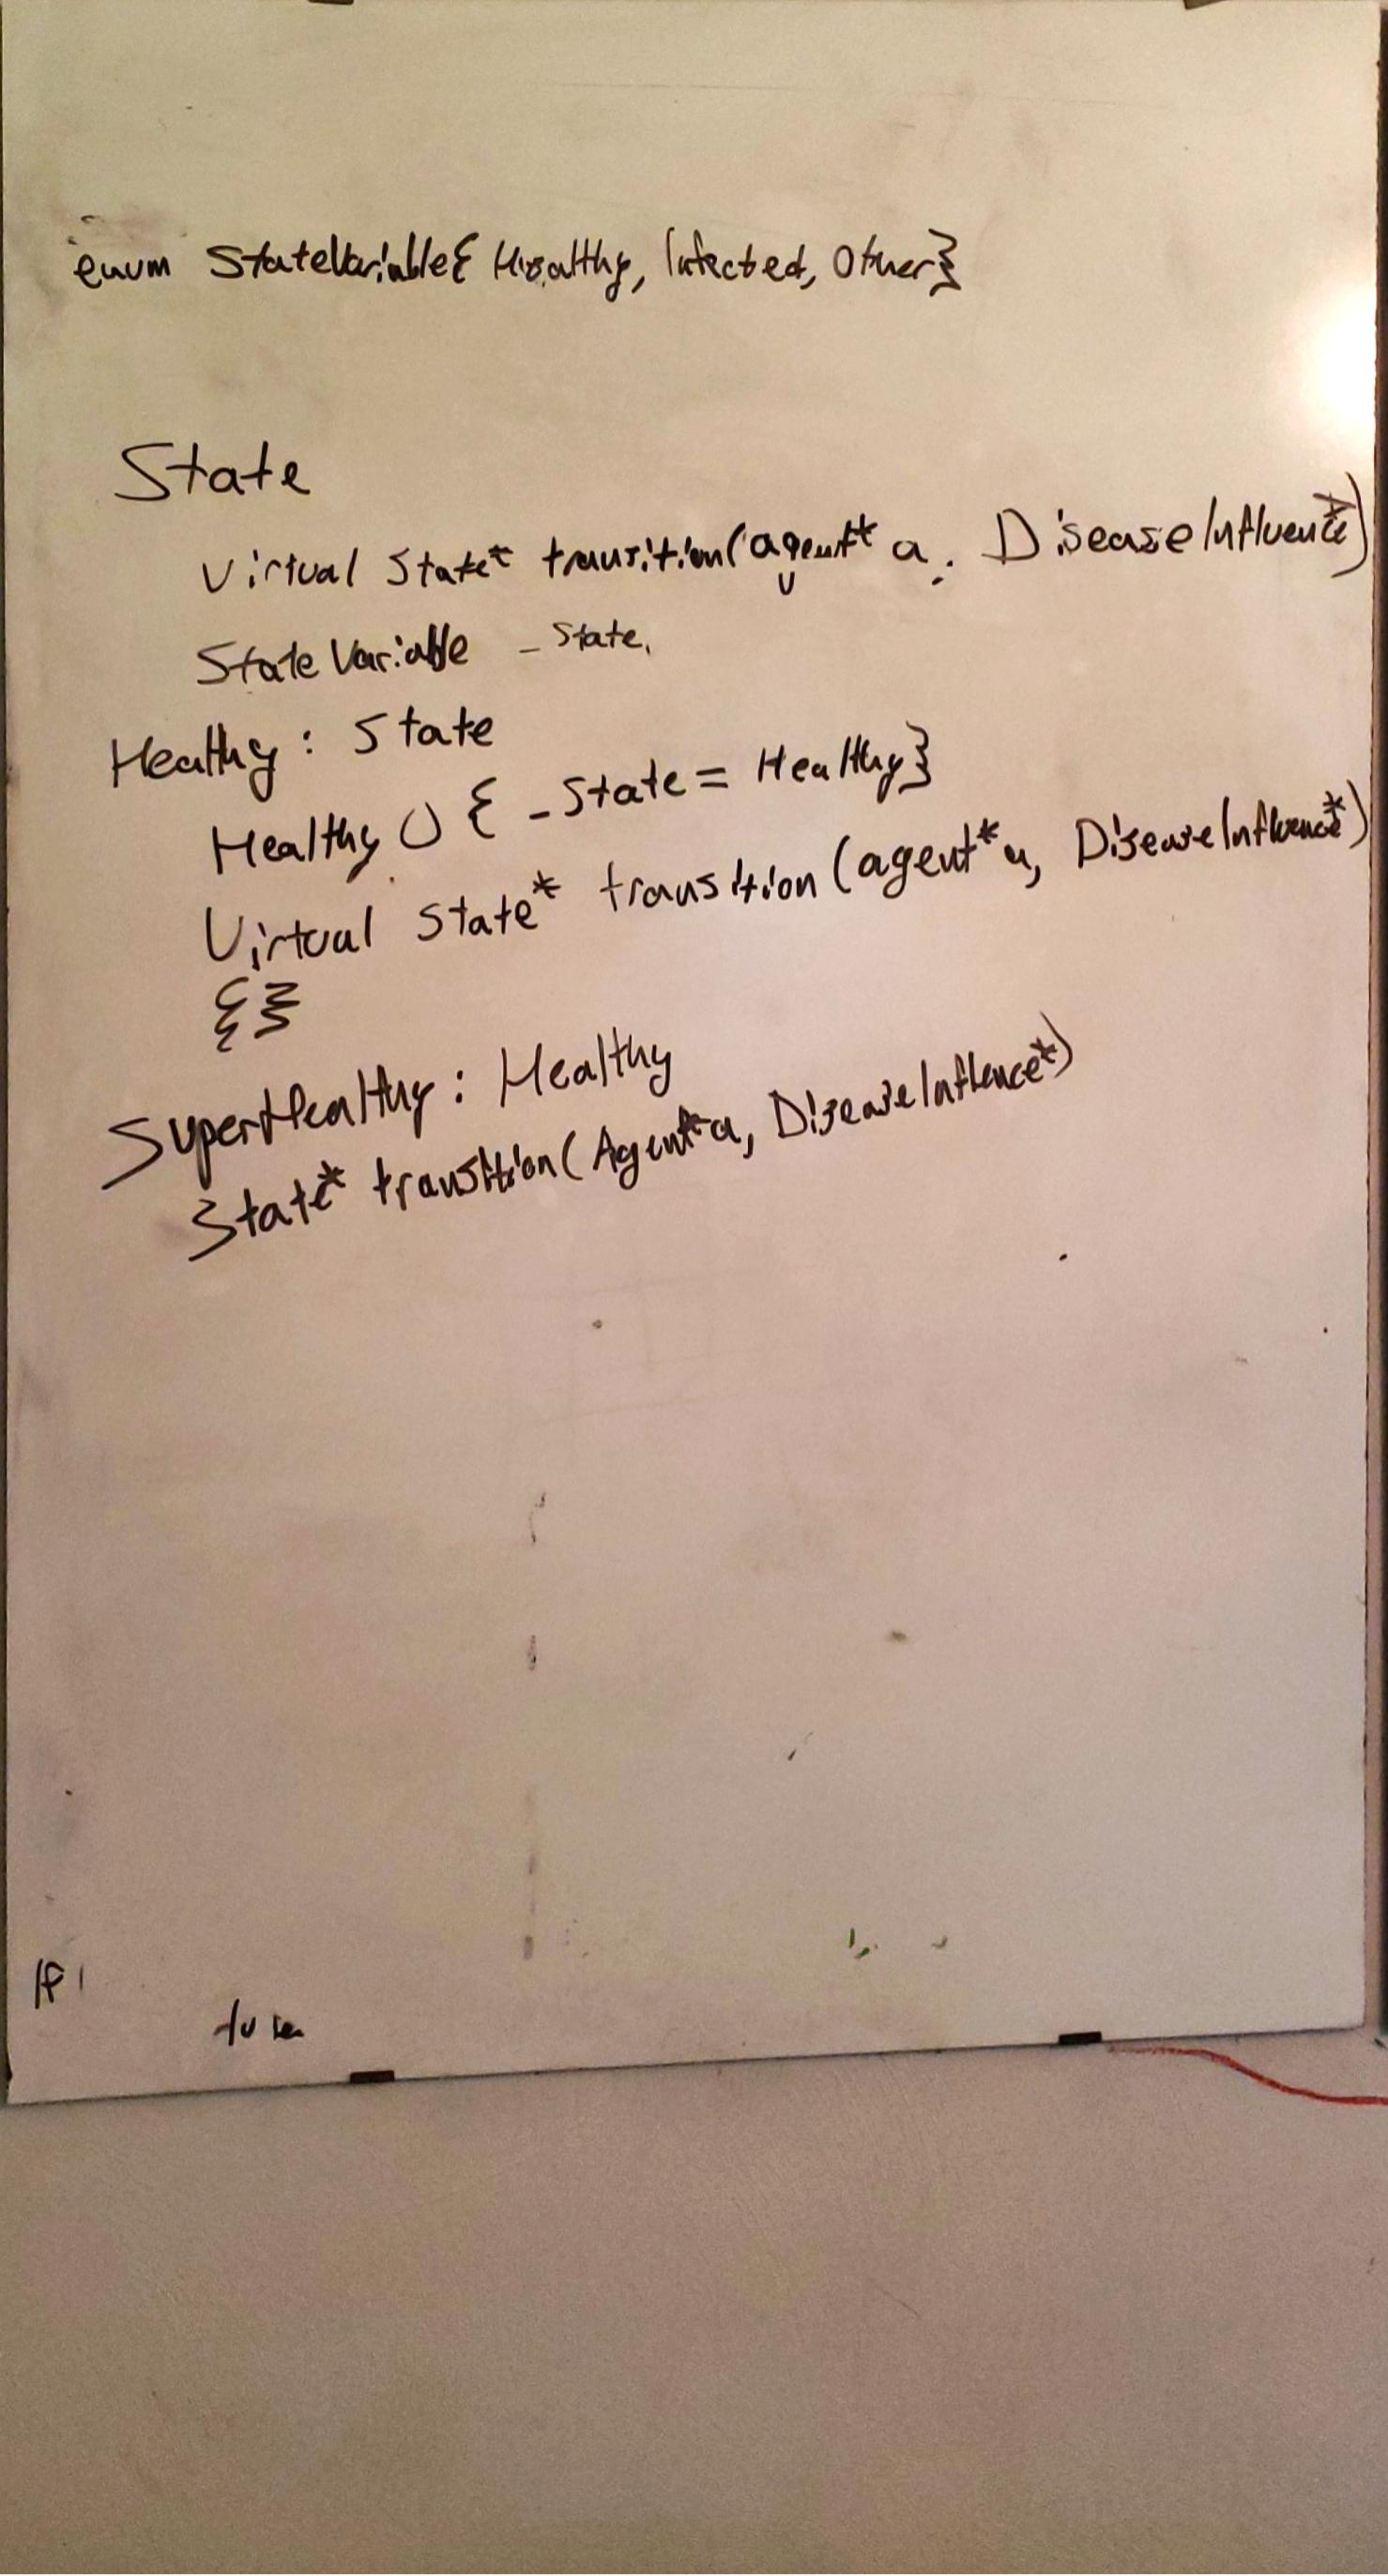 enum StateVariable{ Healthy, Infected, Other}
State
Virtual State* transition(agent* a, DiseaseInfluence*)
StateVariable _state,
Healthy: State
Healthy () { _State = Healthy}
Virtual State* transition (agent* a, DiseaseInfluence*)
{}
SuperHealthy: Healthy
State* transition( Agent* a, DiseaseInfluence*)